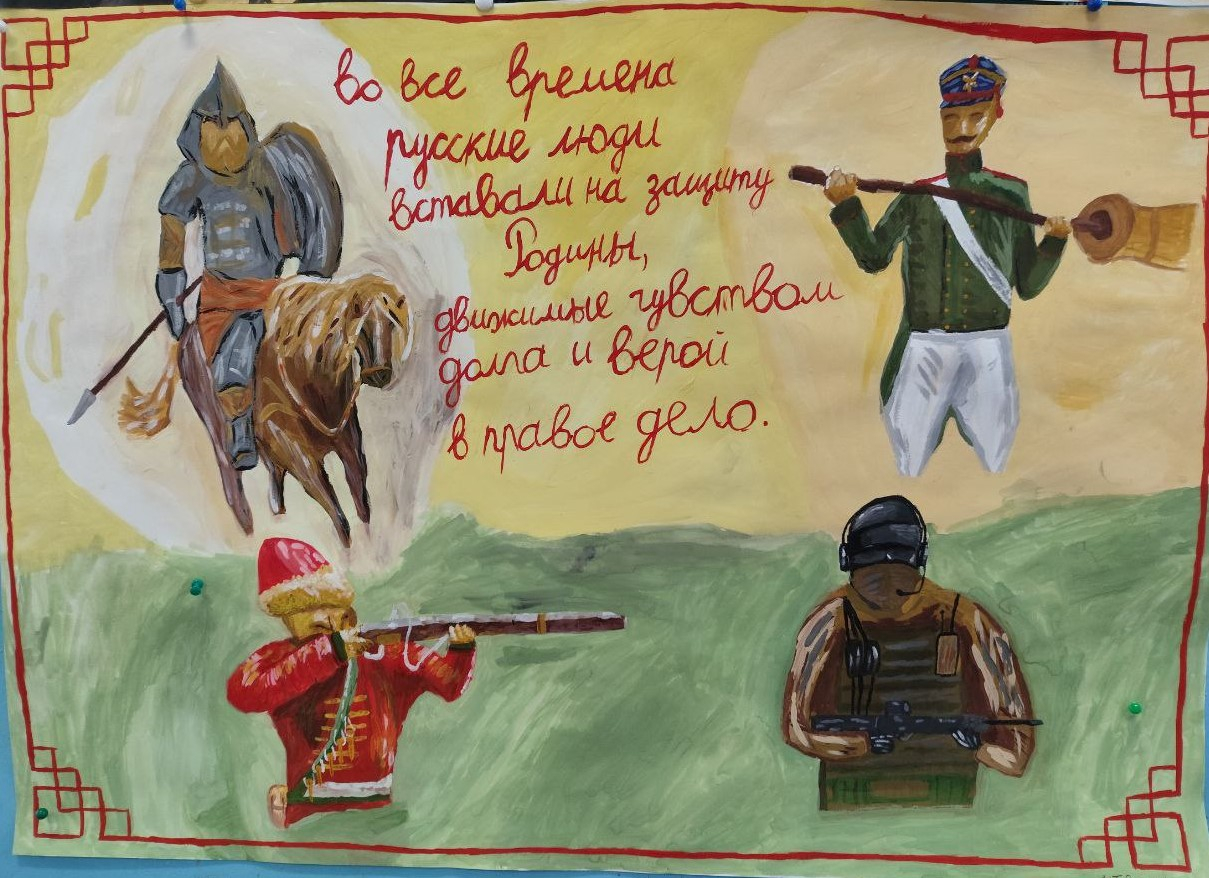 во все времена
русские люди
вставали на защиту
Родины,
движимые чувством
долга и верой
в правое дело.